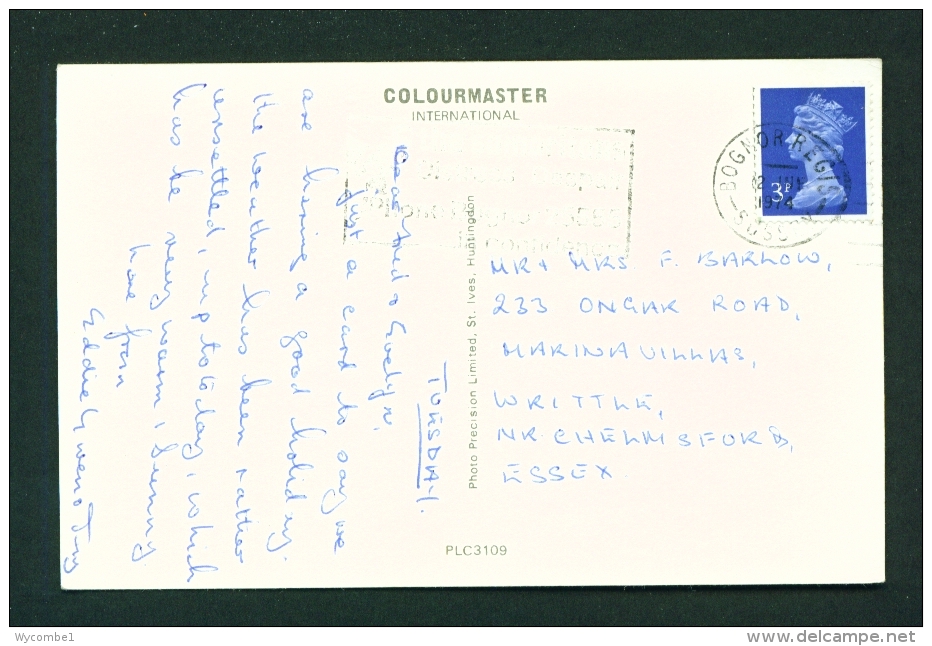 COLOURMASTER
INTERNATIONAL
BOGNOR REGIS
1974
SUSSEX
3P
TUESDAY.
Dear Fred & Evelyn,
Just a card to say we
are having a good holiday.
the weather has been rather
unsettled, up to today, which
has be very warm & sunny.
love from
Eddie Gwen &
Photo Precision Limited, St. Ives, Huntingdon
MR + MRS. F. BARLOW,
233 ONGAR ROAD,
MARINA VILLAS,
WRITTLE,
NR. CHELMSFORD,
ESSEX.
PLC3109
Wycombe1
www.delcampe.net